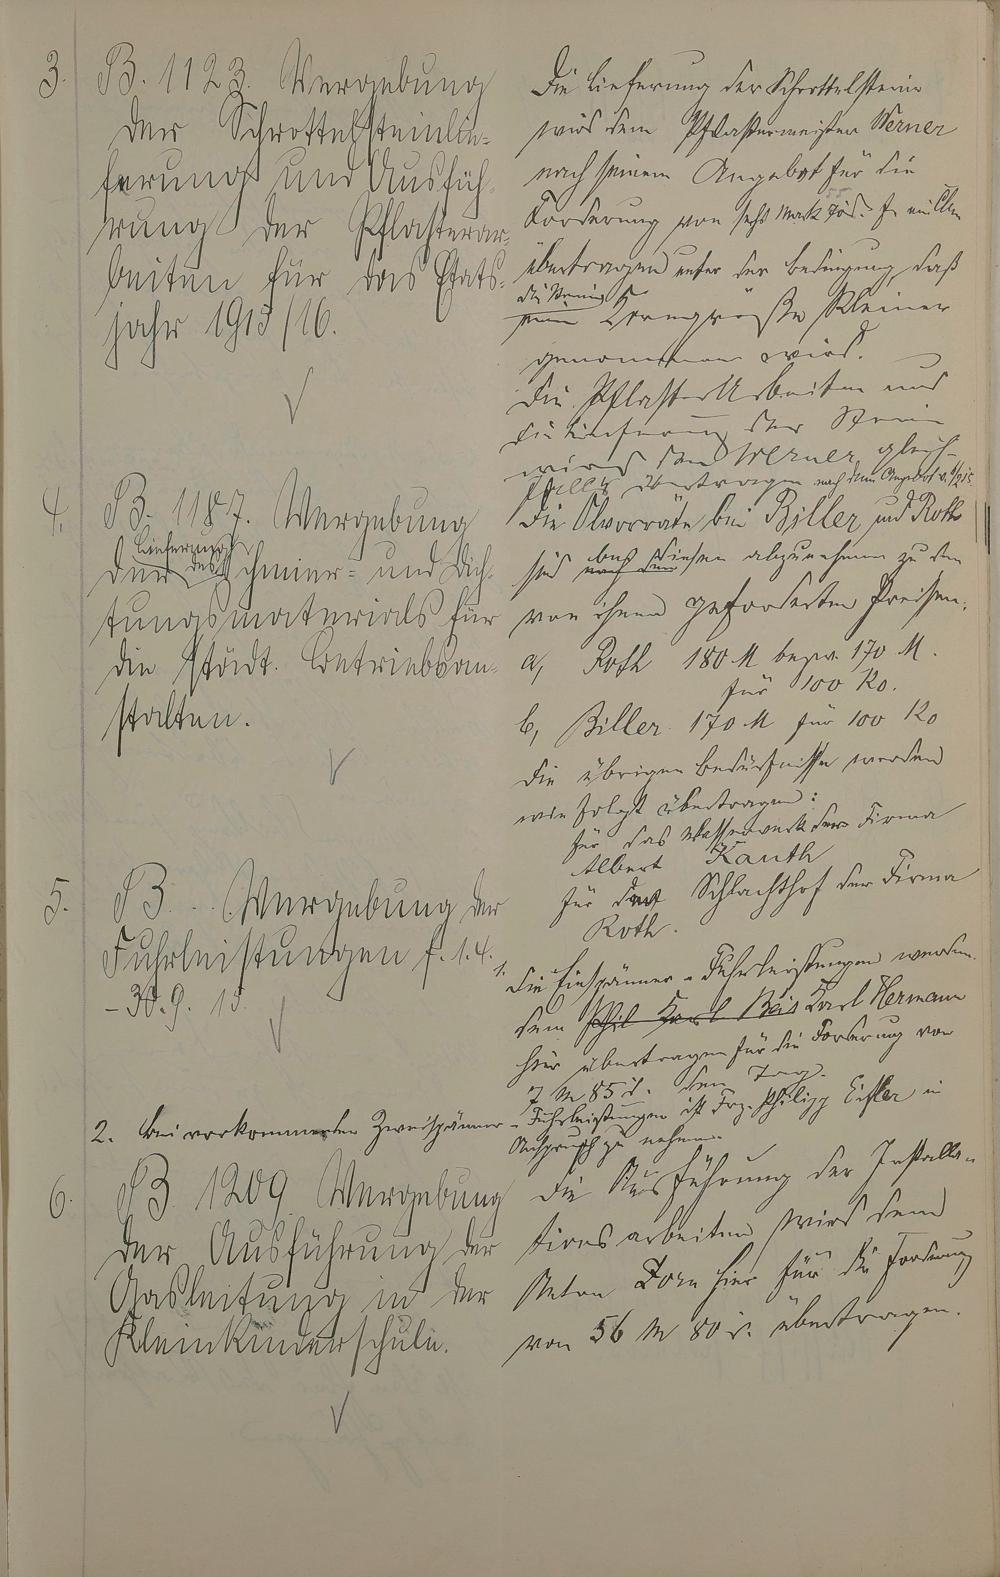 3. B. 1123. Vergebung
der Schrottelsteinlie-
ferung und Ausfüh-
rung der Pflasterar-
beiten für das Etats-
jahr 1915/16.
Die Lieferung der Schrottelsteine
wird dem Pflastermeister Werner
nach seinem Angebot für die
Forderung von sechs Mark
übertragen unter der Bedingung, daß
die Steine
Korngröße kleiner
genommen wird.
Die Pflaster Arbeiten und
die Lieferung der Steine
wird dem Werner gleich-
falls übertragen nach dem Angebot v.
4. B. 1187. Vergebung
der Lieferung des Schmier- und Dich-
tungsmaterials für
die städt. Betriebsan-
stalten.
Die Ölvorräte bei Biller und Roth
sind von diesen abzunehmen zu den
von ihnen geforderten Preisen:
a, Roth 180 M bezw. 170 M.
für 100 Ko.
b, Biller 170 M für 100 Ko
Die übrigen Bedürfnisse werden
wie folgt übertragen:
für das Wasserwerk der Firma
Albert Kauth
für den Schlachthof der Firma
Roth.
5. B. Vergebung der
Fuhrleistungen f. 1.4.
- 30.9. 15
1. Die Einspänner-Fuhrleistungen werden
dem Karl Hermann
hier übertragen für die Forderung von
7 M 85 d. den Tag.
2. Bei vorkommenden Zweispänner-Fuhrleistungen ist Frz. Philipp Eisler in
Anspruch zu nehmen
6. B 1209 Vergebung
der Ausführung der
Gasleitung in der
Kleinkinderschule.
Die Ausführung der Installa-
tionsarbeiten wird dem
Anton Zorn hier für die Forderung
von 56 M 80 d. übertragen.